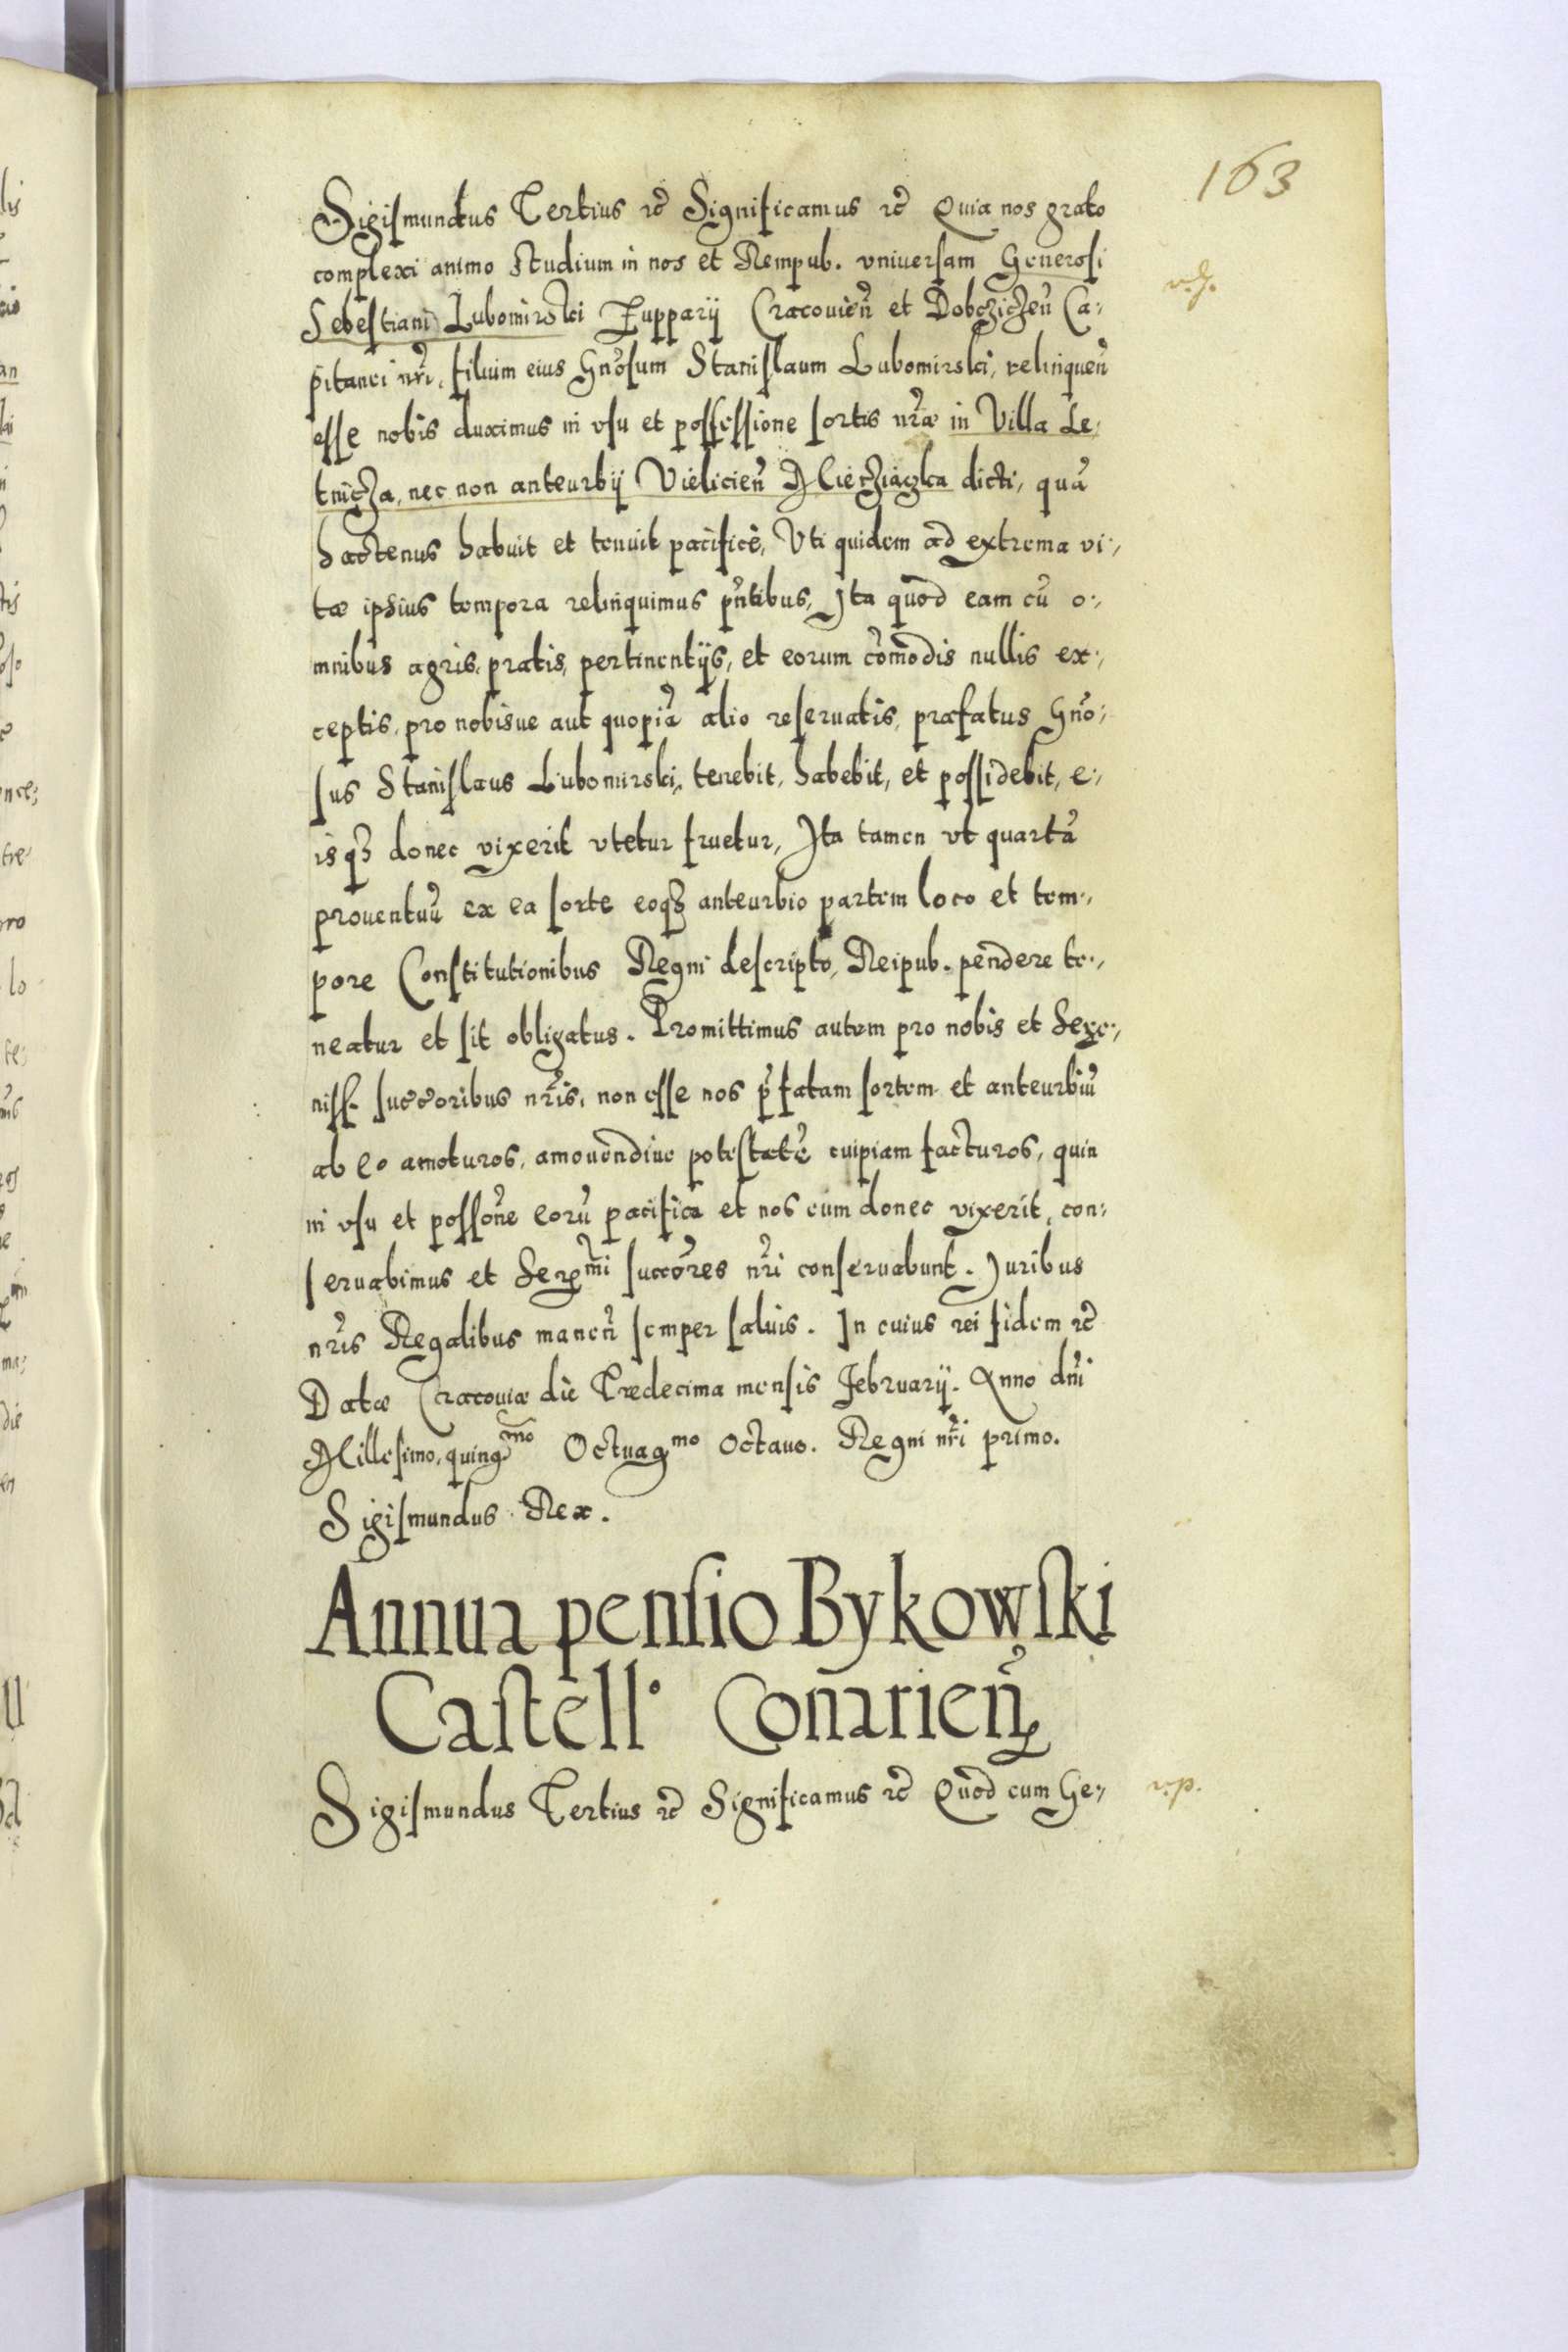 163
Sigismundus Tertius etc Significamus etc Quia nos grato
complexi animo studium in nos et Rempub. vniuersam Generosi
Sebestiani Lubomirski Zupparij Cracovień et Dobczicżeń Ca-
pitanei nri, filium eius Gnosum Stanislaum Lubomirski, relinqueñ
esse nobis duximus in vsu et possessione sortis nræ in Villa Le-
tnicża, nec non anteurbij Vielicień Miecżiączka dicti, quã
hactenus habuit et tenuit pacificè, Vti quidem ad extrema vi-
tæ ipsius tempora relinquimus pñtibus, Ita quod eam cũ o-
mnibus agris, pratis, pertinentijs, et eorum cõmodis nullis ex-
ceptis, pro nobisue aut quopiã alio reseruatis, præfatus Gño-
sus Stanislaus Lubomirski, tenebit, habebit, et possidebit, e-
isqз donec vixerit vtetur fruetur, Ita tamen vt quartã
prouentuũ ex ea sorte eoqз anteurbio partem loco et tem-
pore Constitutionibus Regni descripto, Reipub. pendere te-
neatur et sit obligatus. Promittimus autem pro nobis et Sere-
niss. succoribus nris, non esse nos pfatam sortem et anteurbiũ
ab eo amoturos, amouendiue potestatẽ cuipiam facturos, quin
in vsu et possõne eorũ pacifica et nos eum donec vixerit, con-
seruabimus et Sermi succores nri conseruabunt. Juribus
nris Regalibus maneñ semper saluis. In cuius rei fidem etc
Datæ Cracoviæ die Tredecima mensis Februarij. Anno dni
Millesimo, quingmo Octuagmo Octauo. Regni nri primo.
Sigismundus Rex.
Annua pensio Bykowski
Castell. Conarień
Sigismundus Tertius etc Significamus etc Quod cum Ge-